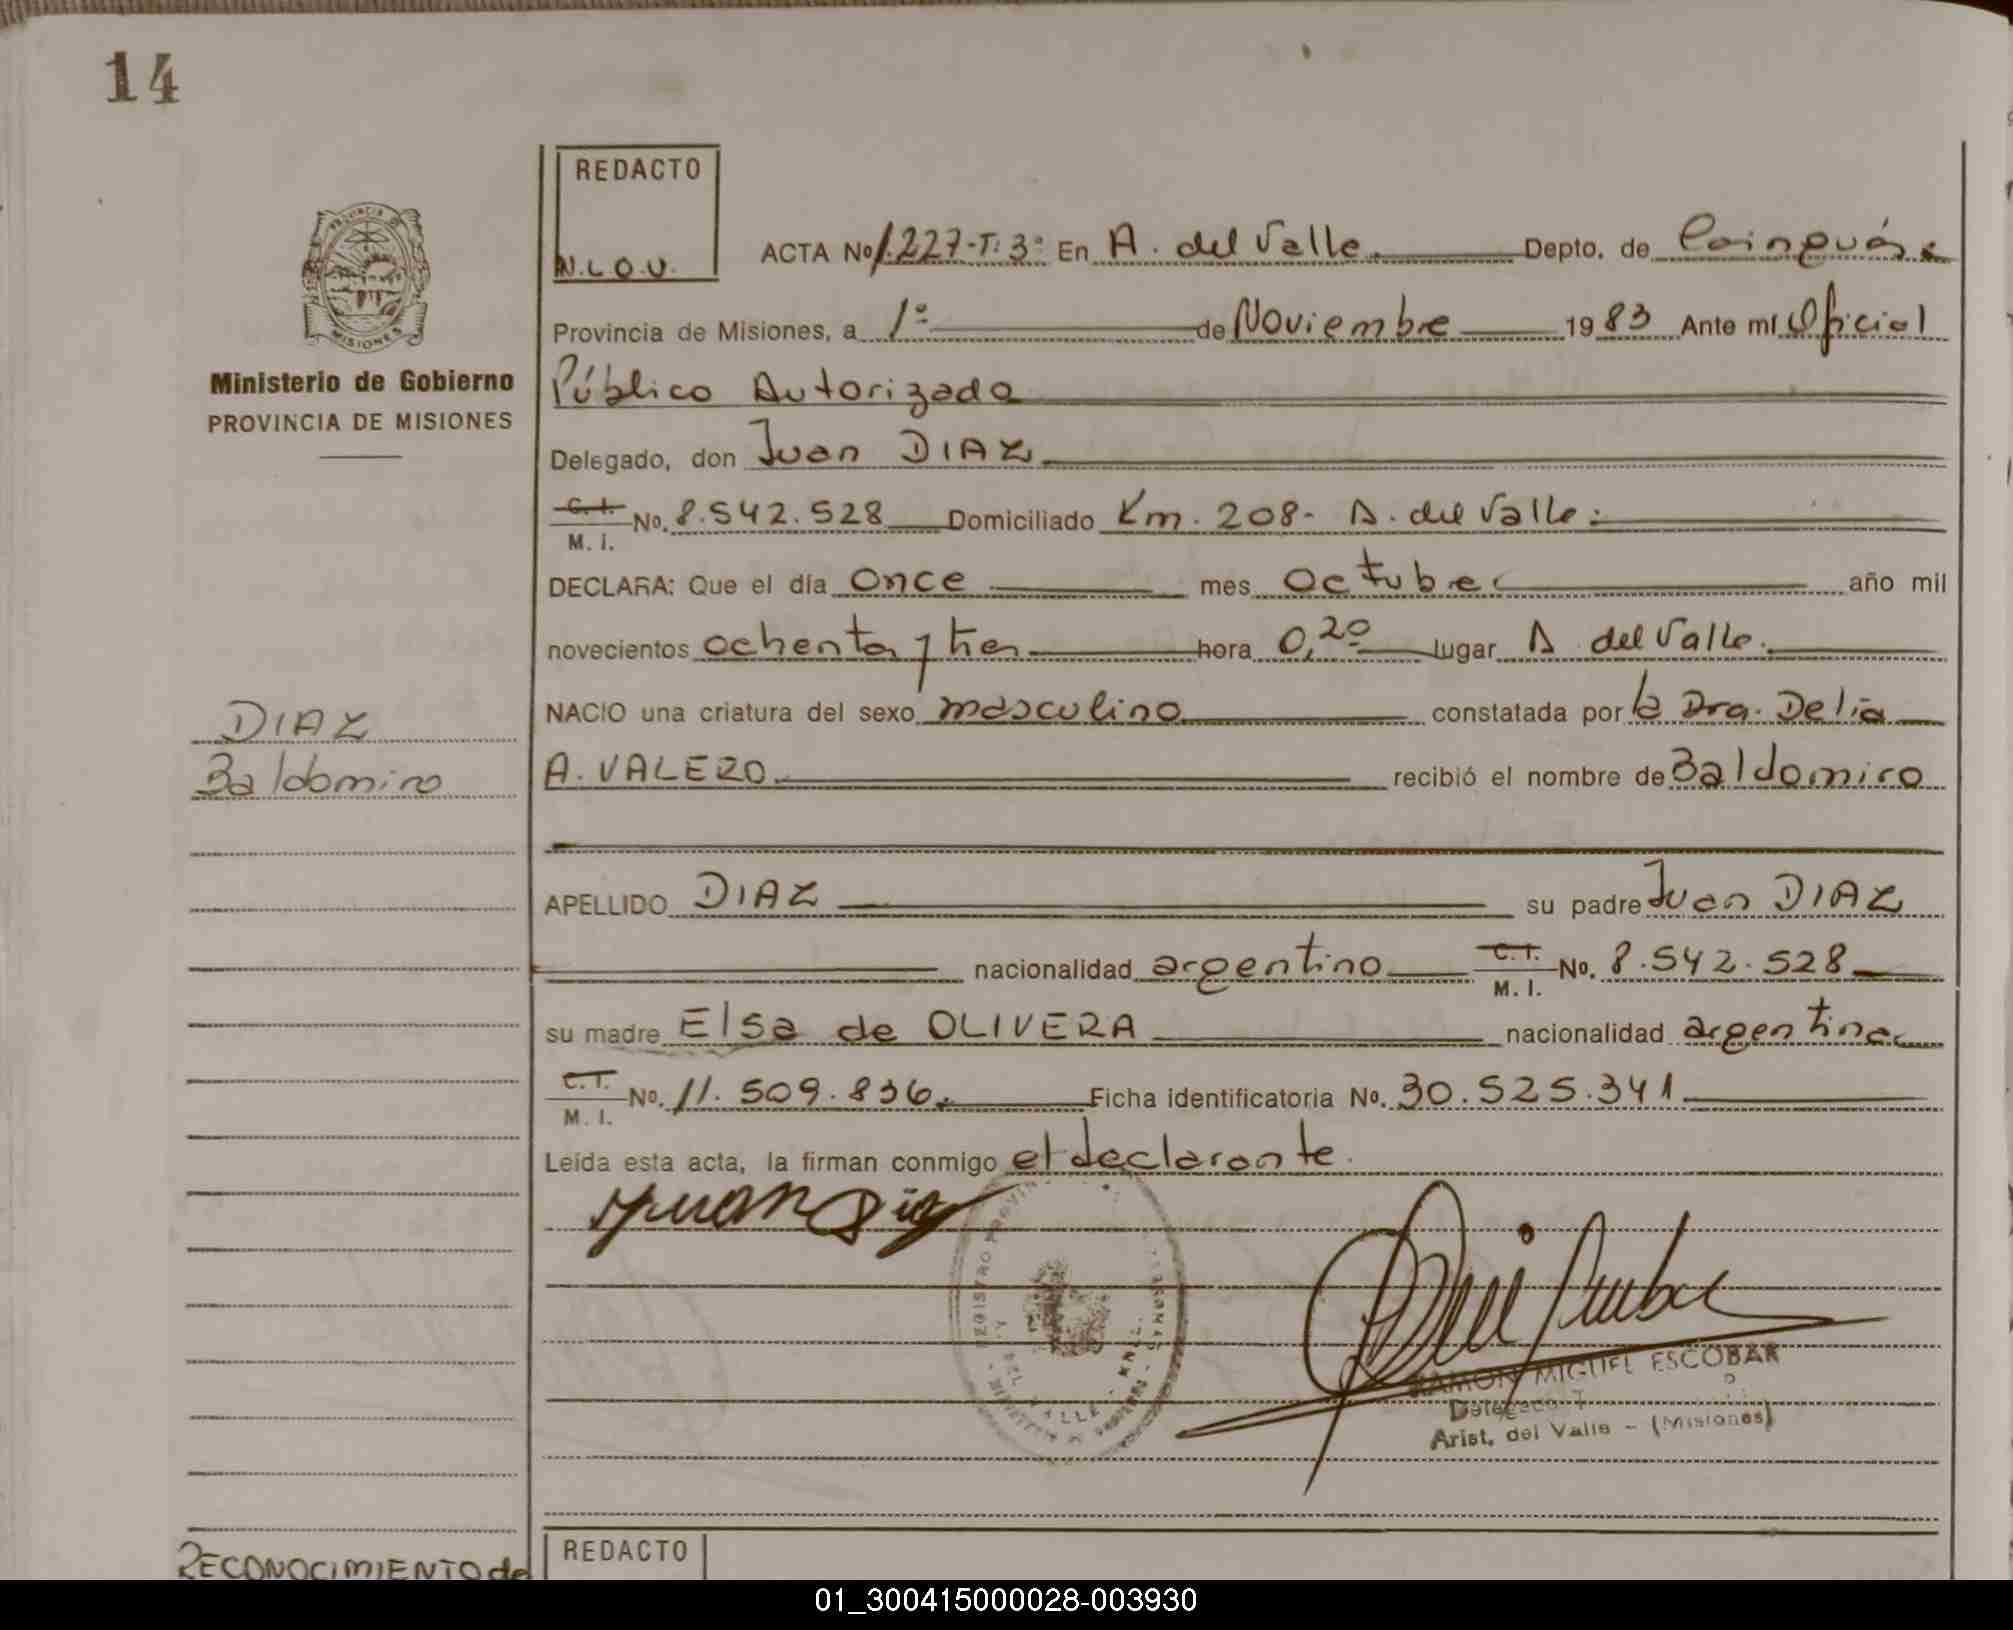 14
REDACTO
N.L.O.U.
PROVINCIA DE
MISIONES
Ministerio de Gobierno
PROVINCIA DE MISIONES
DIAZ
Baldomiro
ACTA No 1.227-T: 3º En A. del Valle. Depto. de Cainguás
Provincia de Misiones, a 1º de Noviembre 1983 Ante mí Oficial
Público Autorizado
Delegado, don Juan DIAZ
C. I. M. I. No. 8.542.528 Domiciliado Km. 208- A. del Valle.
DECLARA: Que el día once mes octubre año mil
novecientos ochenta y tres hora 0,20 lugar A. del Valle.
NACIO una criatura del sexo masculino constatada por la Dra. Delia
A. VALERO. recibió el nombre de Baldomiro
APELLIDO DIAZ su padre Juan DIAZ
nacionalidad argentino C. I. M. I. No. 8.542.528
su madre Elsa de OLIVERA nacionalidad argentina
C. I. M. I. No. 11.509.836. Ficha identificatoria No. 30.525.341
Leída esta acta, la firman conmigo el declarante.
Juan Diaz
REGISTRO PROVIN
DEL VALLE
RAMON MIGUEL ESCOBAR
Delegado
Arist. del Valle - (Misiones)
RECONOCIMIENTO de
REDACTO
01_300415000028-003930